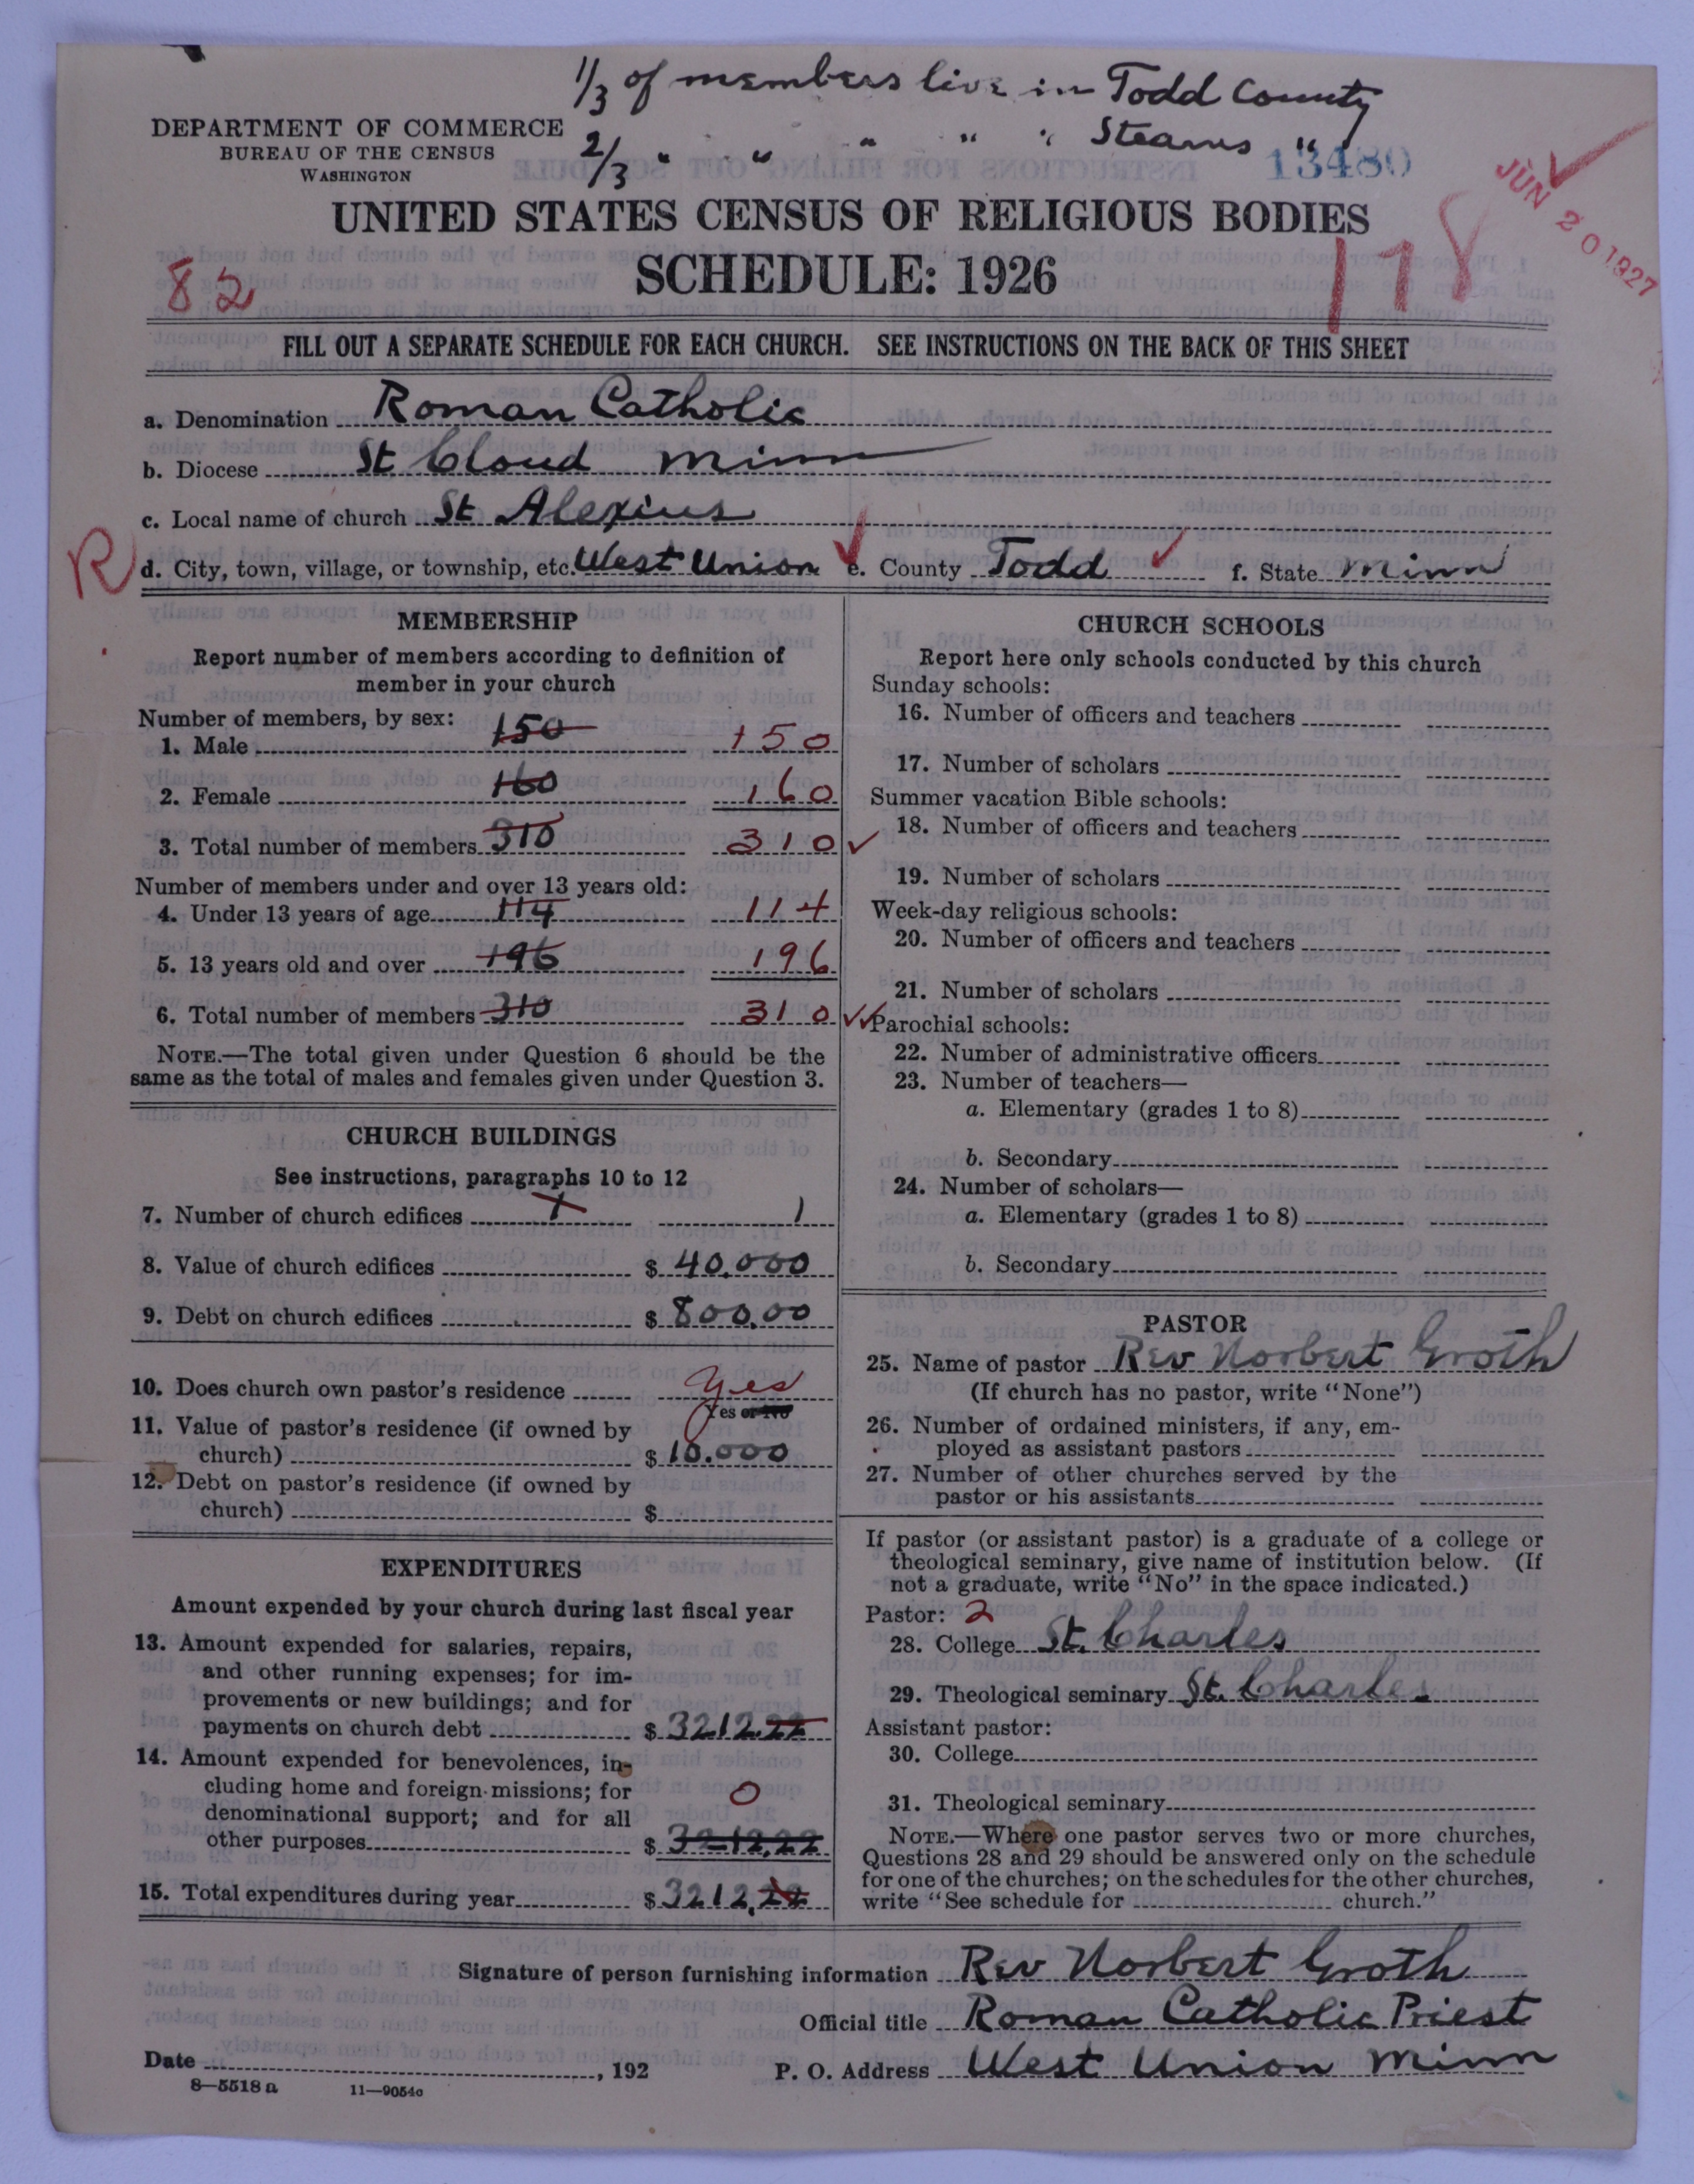 1/3 of members live in Todd County
2/3 " " " " " Stearns "
DEPARTMENT OF COMMERCE
BUREAU OF THE CENSUS
WASHINGTON
13480
JUN 20 1927
UNITED STATES CENSUS OF RELIGIOUS BODIES
SCHEDULE: 1926
82
118
FILL OUT A SEPARATE SCHEDULE FOR EACH CHURCH. SEE INSTRUCTIONS ON THE BACK OF THIS SHEET
a. Denomination Roman Catholic
b. Diocese St Cloud Minn
c. Local name of church St Alexius
R d. City, town, village, or township, etc. West Union e. County Todd f. State Minn
MEMBERSHIP
Report number of members according to definition of
member in your church
Number of members, by sex:
1. Male 150 150
2. Female 160 160
3. Total number of members 310 310
Number of members under and over 13 years old:
4. Under 13 years of age 114 114
5. 13 years old and over 196 196
6. Total number of members 310 310
NOTE.—The total given under Question 6 should be the
same as the total of males and females given under Question 3.
CHURCH BUILDINGS
See instructions, paragraphs 10 to 12
7. Number of church edifices 1 1
8. Value of church edifices $ 40.000
9. Debt on church edifices $ 800.00
10. Does church own pastor's residence yes
Yes or No
11. Value of pastor's residence (if owned by
church) $ 10.000
12. Debt on pastor's residence (if owned by
church) $
EXPENDITURES
Amount expended by your church during last fiscal year
13. Amount expended for salaries, repairs,
and other running expenses; for im-
provements or new buildings; and for
payments on church debt $ 3212.22
14. Amount expended for benevolences, in-
cluding home and foreign missions; for
denominational support; and for all 0
other purposes $ 3212.22
15. Total expenditures during year $ 3212.22
CHURCH SCHOOLS
Report here only schools conducted by this church
Sunday schools:
16. Number of officers and teachers
17. Number of scholars
Summer vacation Bible schools:
18. Number of officers and teachers
19. Number of scholars
Week-day religious schools:
20. Number of officers and teachers
21. Number of scholars
Parochial schools:
22. Number of administrative officers
23. Number of teachers—
a. Elementary (grades 1 to 8)
b. Secondary
24. Number of scholars—
a. Elementary (grades 1 to 8)
b. Secondary
PASTOR
25. Name of pastor Rev Norbert Groth
(If church has no pastor, write "None")
26. Number of ordained ministers, if any, em-
ployed as assistant pastors
27. Number of other churches served by the
pastor or his assistants
If pastor (or assistant pastor) is a graduate of a college or
theological seminary, give name of institution below. (If
not a graduate, write "No" in the space indicated.)
Pastor: 2
28. College St. Charles
29. Theological seminary St. Charles
Assistant pastor:
30. College
31. Theological seminary
NOTE.—Where one pastor serves two or more churches,
Questions 28 and 29 should be answered only on the schedule
for one of the churches; on the schedules for the other churches,
write "See schedule for church."
Signature of person furnishing information Rev Norbert Groth
Official title Roman Catholic Priest
Date , 192 P. O. Address West Union Minn
8—5518 a 11—9054c